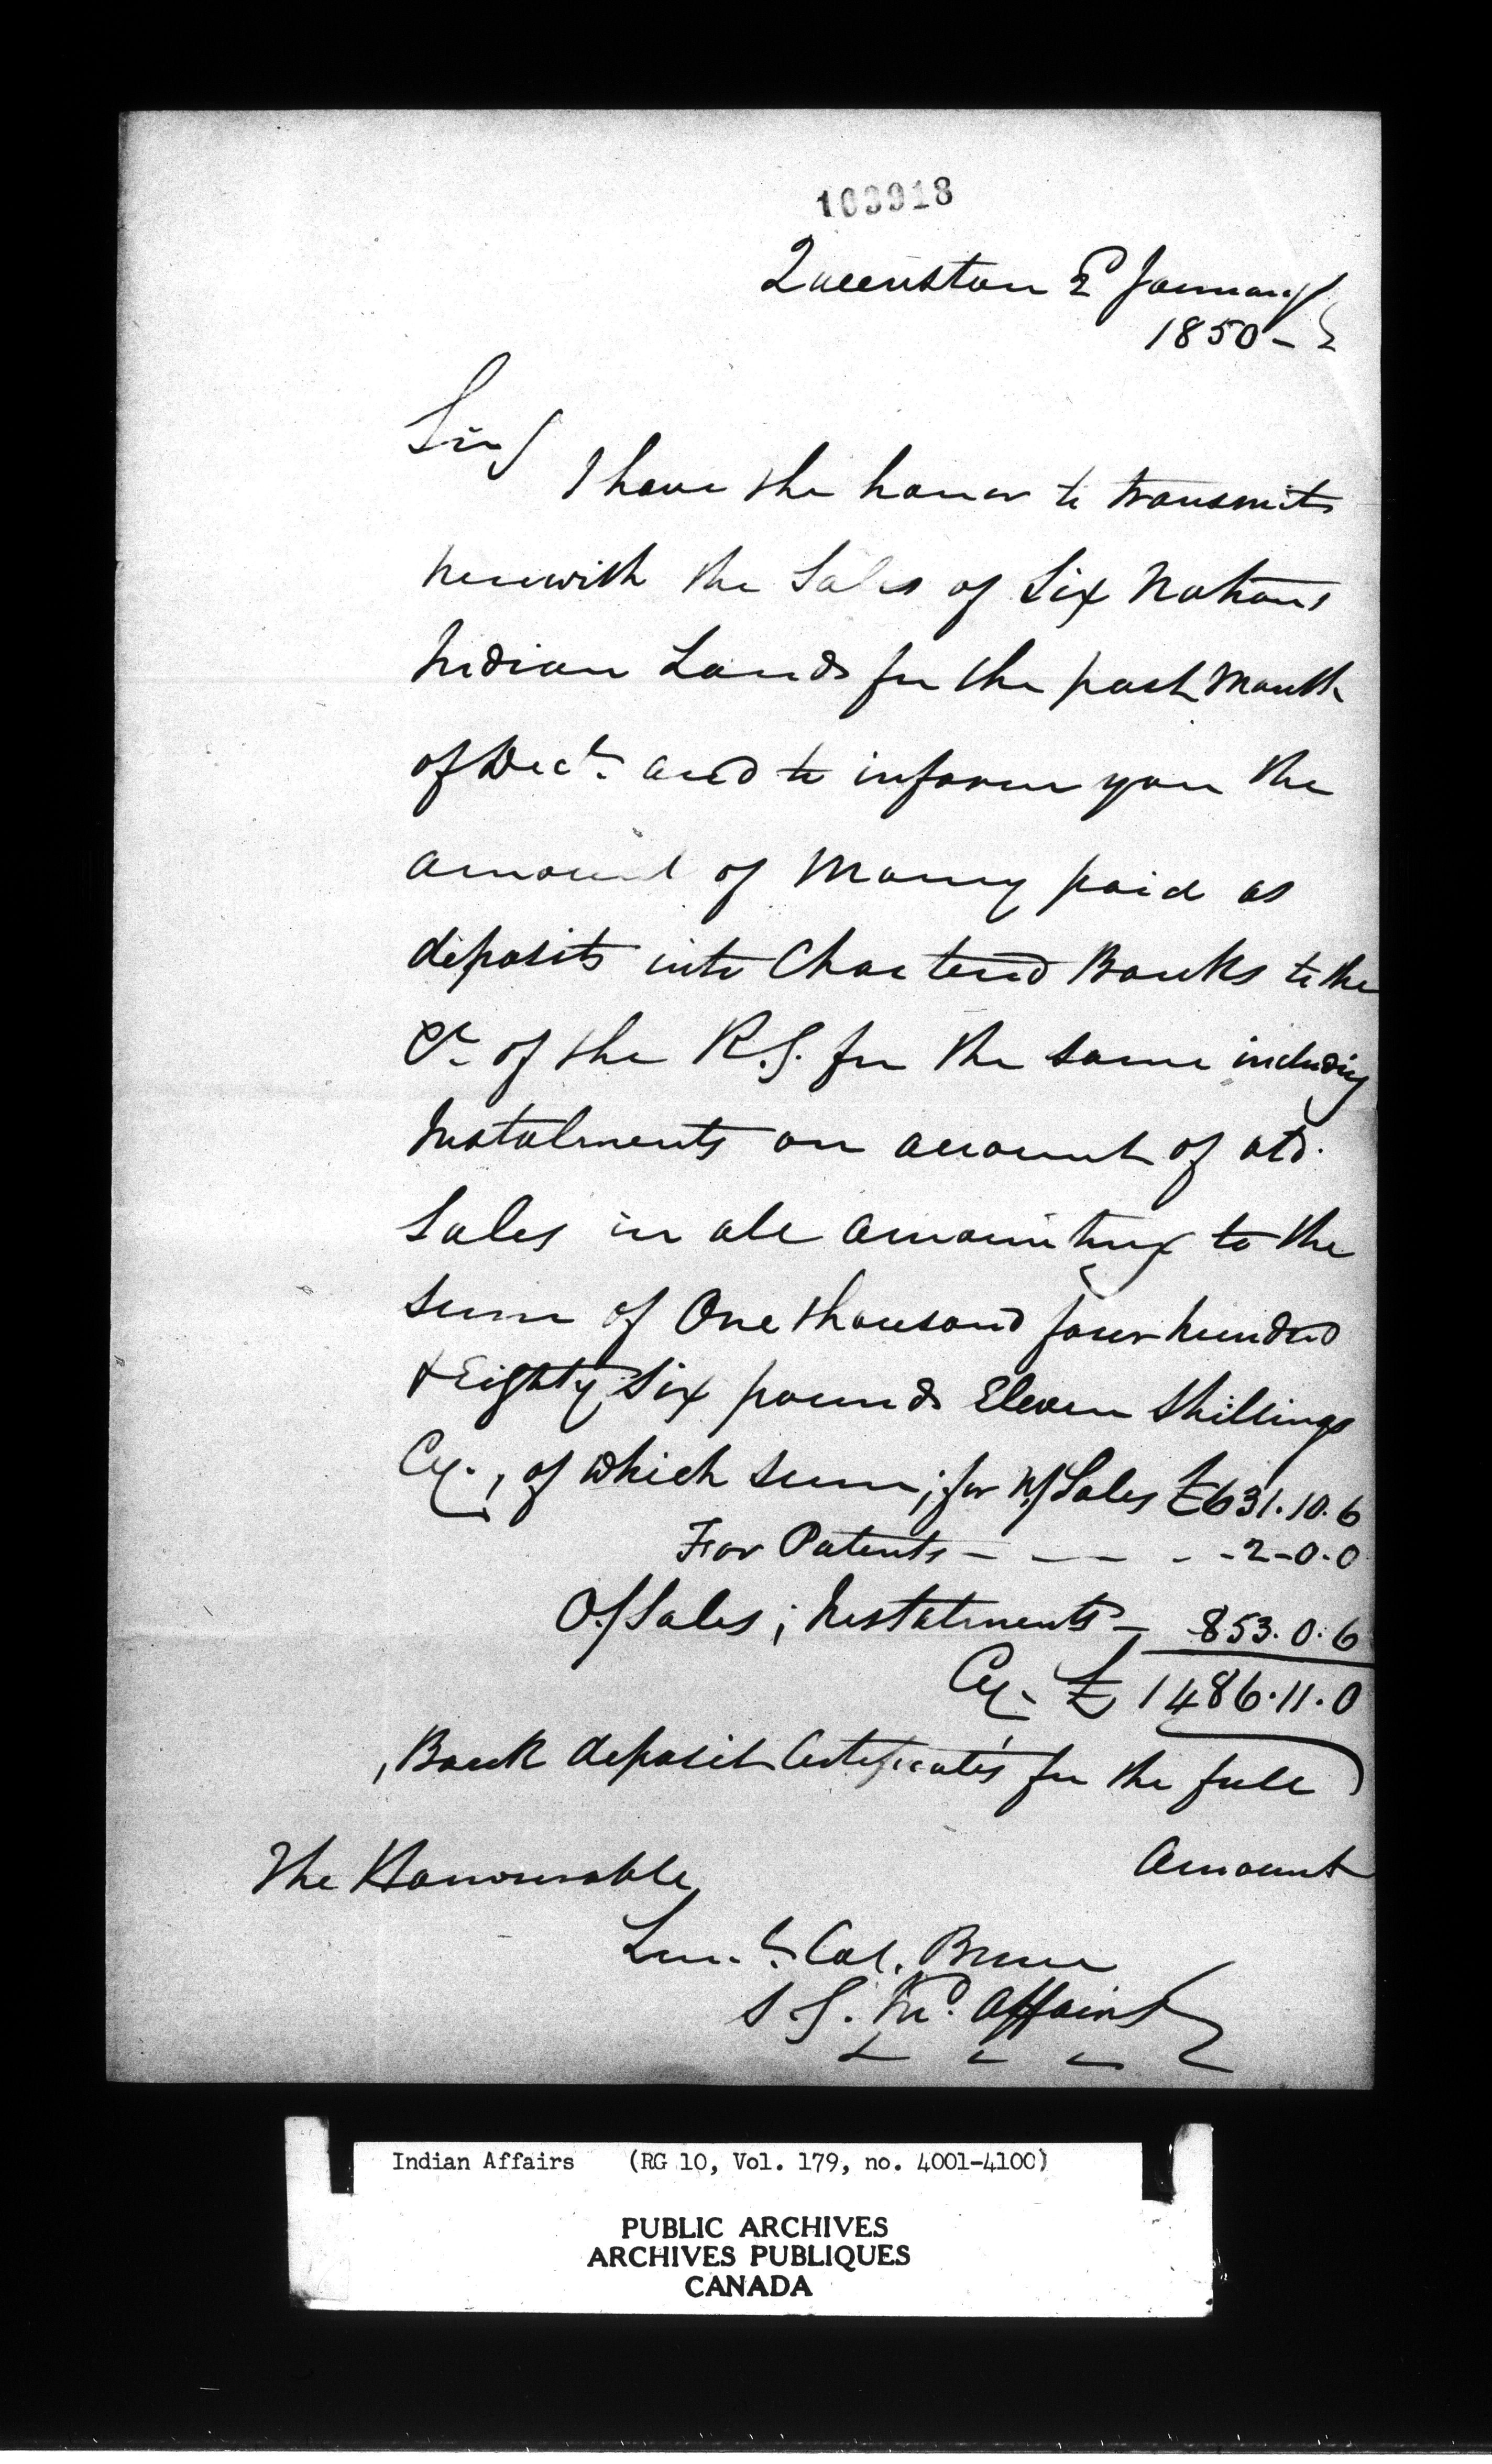 103918
Queenston 2d January
1850 -
Sir/
I have the honor to transmit
herewith the Sales of Six Nations
Indian Lands for the past Month
of Decr. and to inform you the
amount of Money paid as
deposits into Chartered Banks to the
Cr. of the R.G. for the same including
Instalments on account of old.
Sales in all amounting to the
sum of One thousand four hundred
& Eighty Six pounds Eleven Shillings
Cy., of which sum; for N/Sales £631.10.6
For Patents - - - - - 2-0.0
O/Sales; Instalments - 853.0.6
Cy. £1486.11.0
, Bank deposit Certificates for the full
Amount
The Honourable
Lieut. Col. Bruce
S.G. Ind. Affairs
Indian Affairs (RG 10, Vol. 179, no. 4001-4100)
PUBLIC ARCHIVES
ARCHIVES PUBLIQUES
CANADA